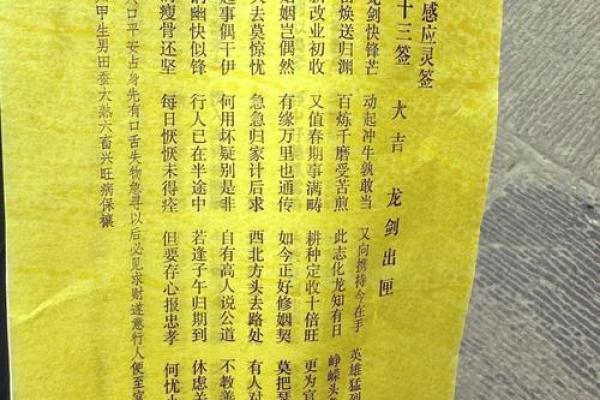 感应灵签
十三签 大吉 龙剑出匣
龙剑快锋芒 动起冲牛孰敢当 又向携持今在手 英雄猛烈
焕送归渊 百炼千磨受苦煎 此志化龙知有日 峥嵘头
新改业初收 又值春期事满畴 耕种定收十倍旺 更为官
姻姻岂偶然 有缘万里也通传 如今正好修姻契 莫把琴
失去莫惊忧 急急归家计后求 西北方头去路处 有人对
起事偶干伊 何用坏疑别是非 自有高人说公道 不教善
幽快似锋 行人已在半途中 若逢子午归期到 休虑关
瘦骨还坚 每日恹恹未得痊 但要存心报忠孝 何忧
口平安占身先有口舌失物急寻以后必见求财遂意行人便至官
甲生男田蚕大熟六畜兴旺病保禳